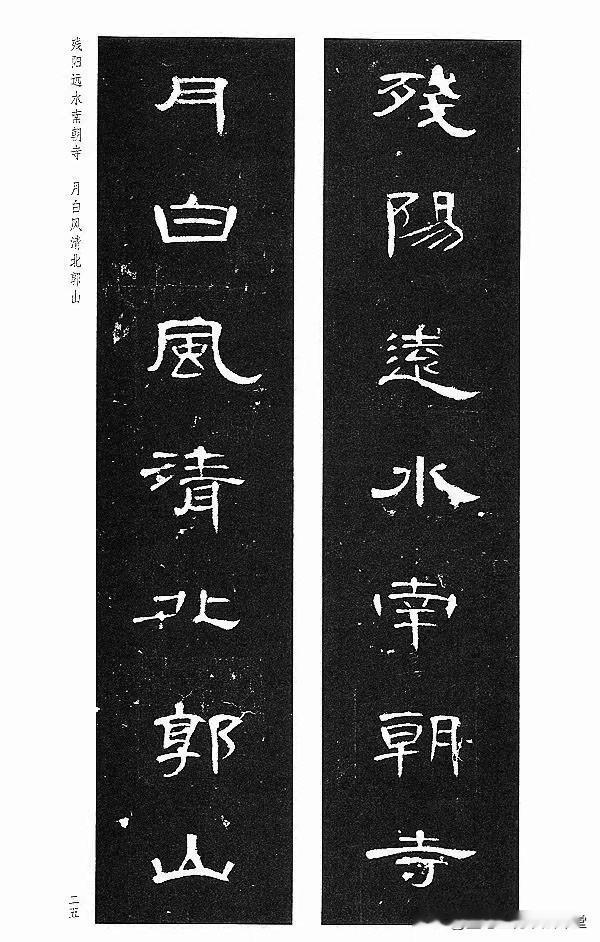 殘陽遠水南朝寺
月白風清北郭山
残阳远水南朝寺 月白风清北郭山
二五